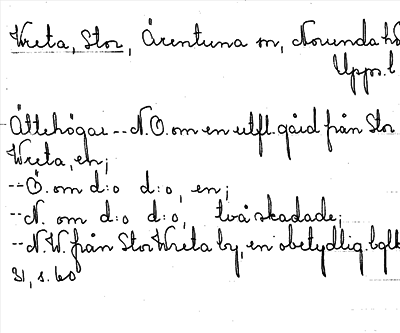 Wreta, Stor, Ärentuna sn, Norunda hd
Upps. l
Ättehögar -- N.O. om en utfl. gård från Stor
Wreta, en;
-- Ö. om d:o d:o, en;
-- N. om d:o d:o, två skadade;
-- N.W. från Stor Wreta by, en obetydlig.
31, s. 60